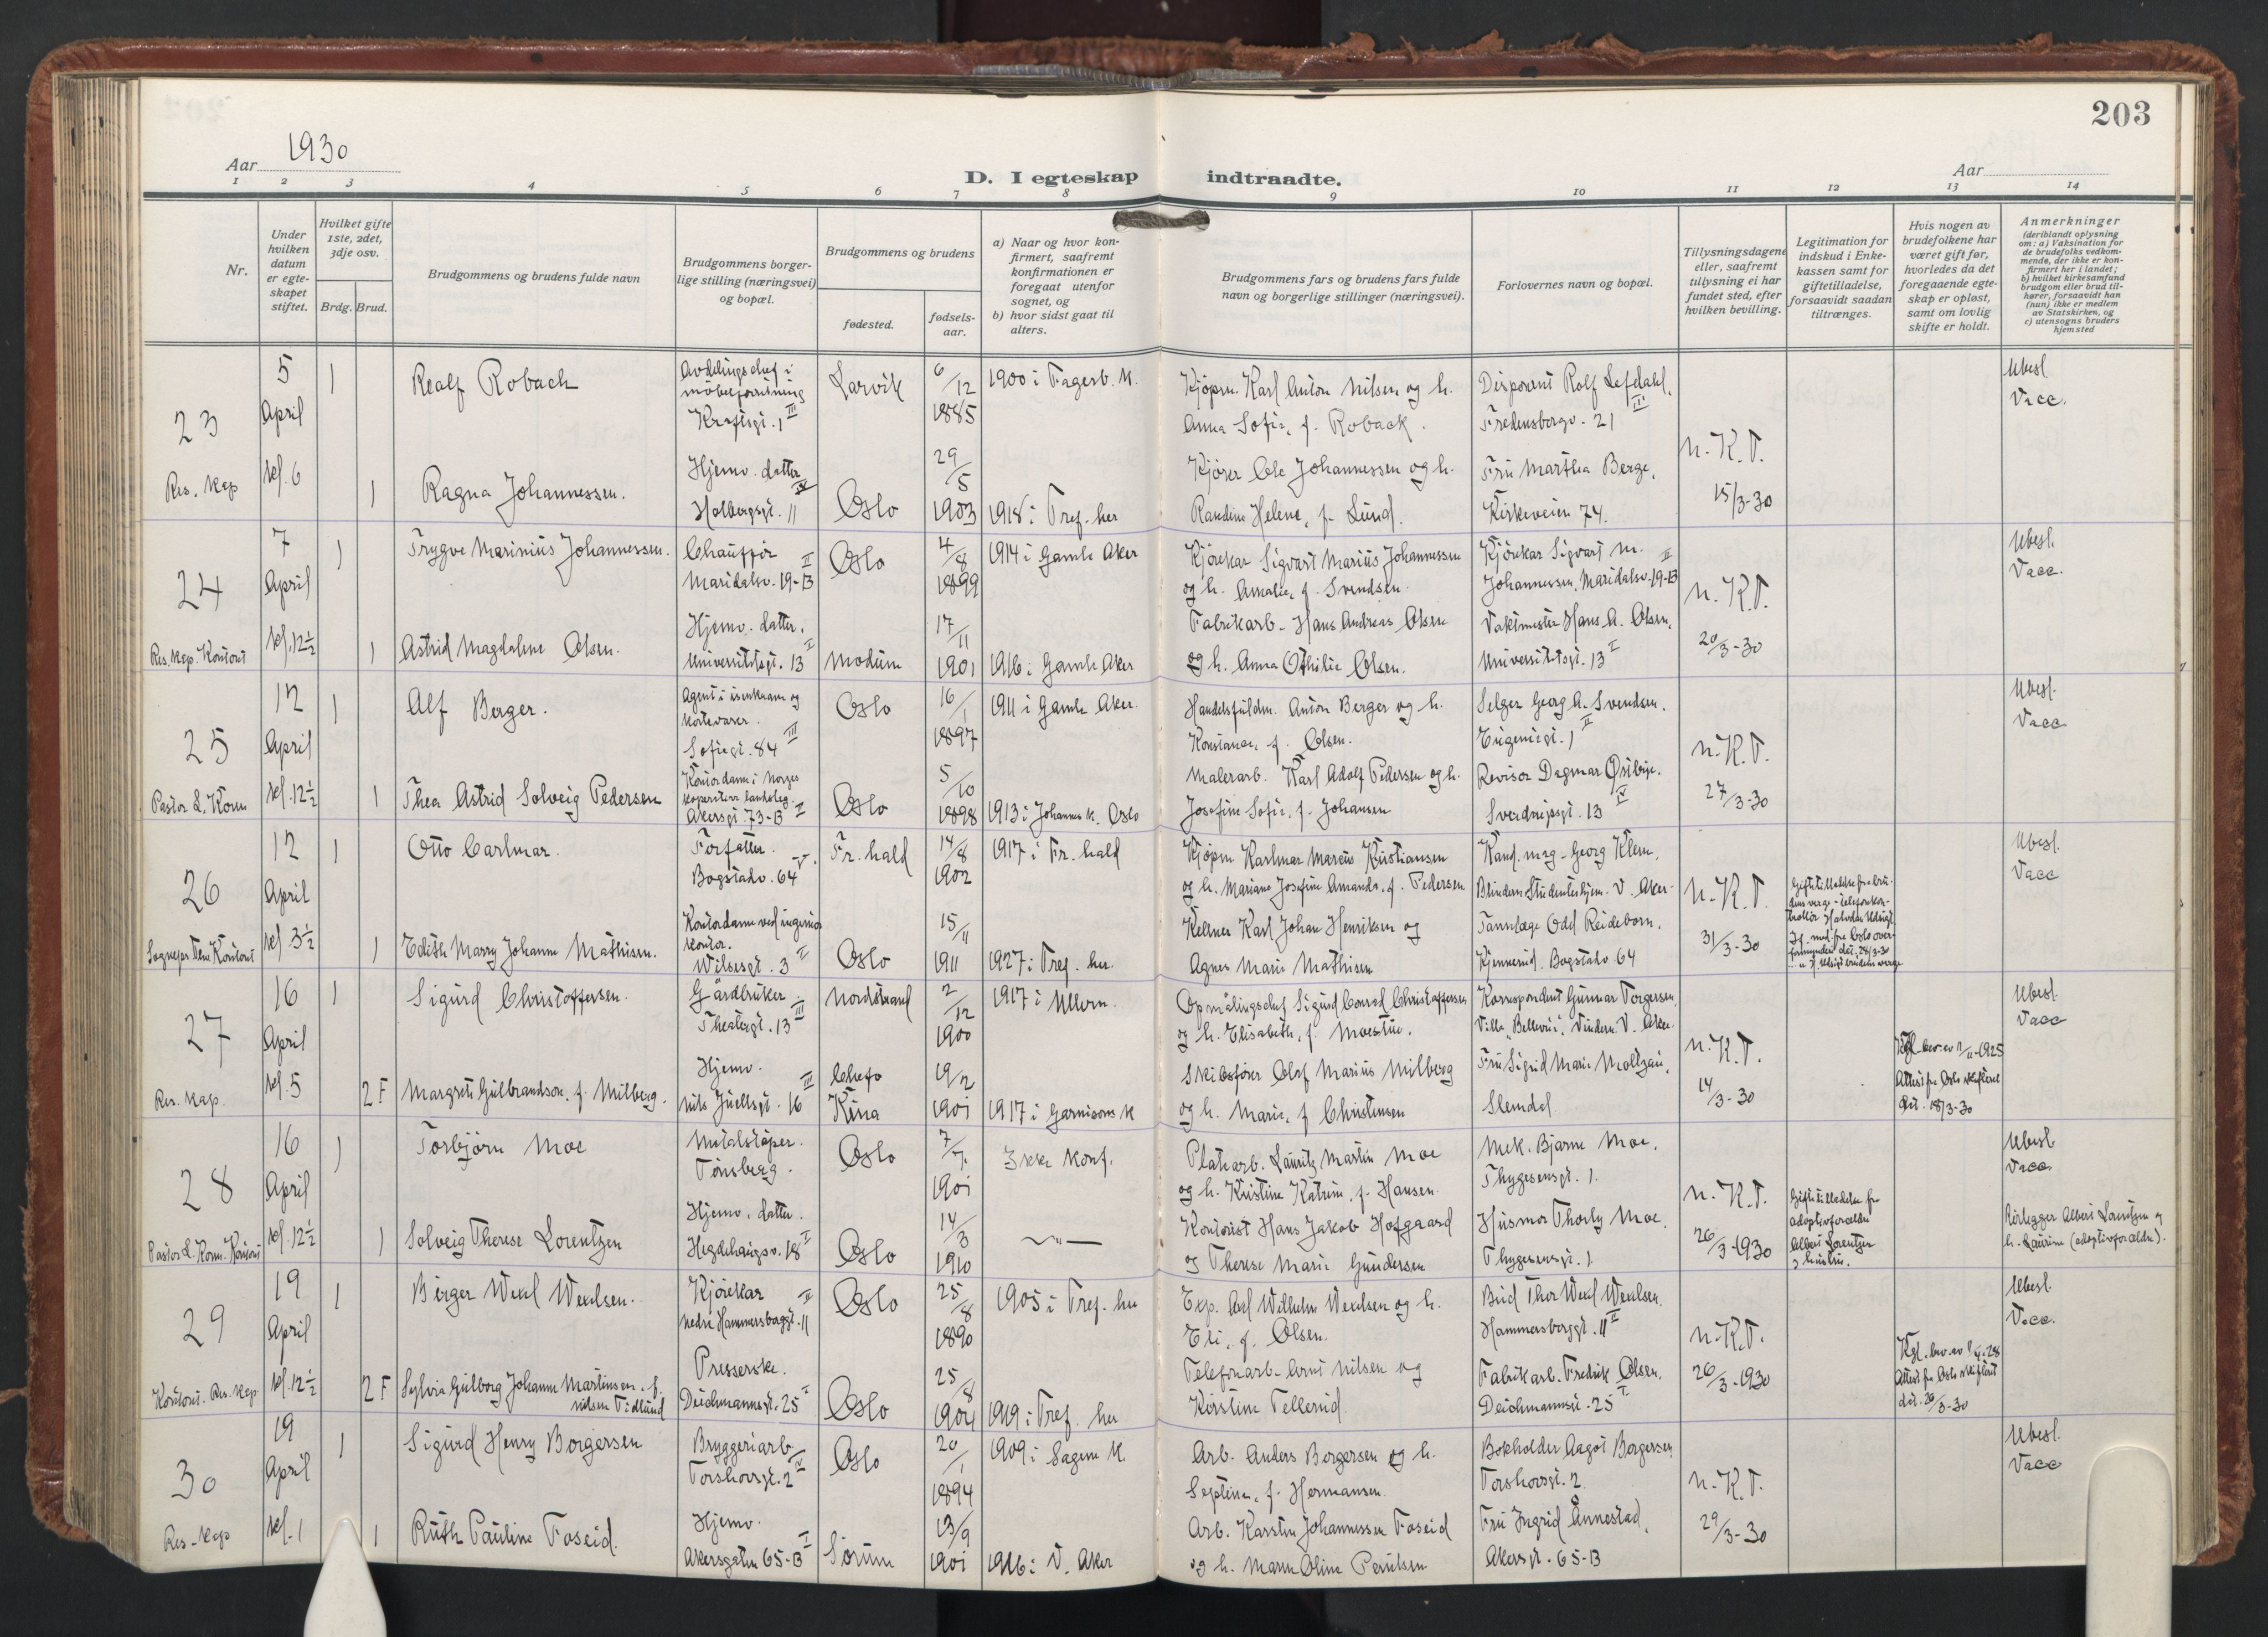 203
Aar 1930
Aar
D. I egteskap indtraadte.
1 2 3 4 5 6 7 8 9 10 11 12 13 14
Nr.
Under hvilken datum er egteskapet stiftet.
Hvilket gifte 1ste, 2det, 3dje osv.
Brdg. Brud.
Brudgommens og brudens fulde navn
Brudgommens borgerlige stilling (næringsvei) og bopæl.
Brudgommens og brudens
fødested.
fødselsaar.
a) Naar og hvor konfirmert, saafremt konfirmationen er foregaat utenfor sognet, og
b) hvor sidst gaat til alters.
Brudgommens fars og brudens fars fulde navn og borgerlige stillinger (næringsvei).
Forlovernes navn og bopæl.
Tillysningsdagene eller, saafremt tillysning ei har fundet sted, efter hvilken bevilling.
Legitimation for indskud i Enkekassen samt for giftetilladelse, forsaavidt saadan tiltrænges.
Hvis nogen av brudefolkene har været gift før, hvorledes da det foregaaende egteskap er opløst, samt om lovlig skifte er holdt.
Anmerkninger
(deriblandt oplysning om: a) Vaksination for de brudefolks vedkommende, der ikke er konfirmert her i landet;
b) hvilket kirkesamfund brudgom eller brud tilhører, forsaavidt han (hun) ikke er medlem av Statskirken, og
c) utensogns bruders hjemsted
23
Res. Kap
5 April kl. 6
1
Realf Robach
Avdelingschef i møbelforretning
Kraftsgt. 1 III
Larvik
6/12 1885
1900 i Fagerb. K.
Kjøpm. Karl Anton Nilsen og h.
Anna Sofie, f. Roback.
Disponent Rolf Lefdahl.
Fredensborgv. 21 III
Ubesl.
Vacc.
1
Ragna Johannessen.
Hjemv. datter
Holbergsgt. 11 IV
Oslo
29/5 1903
1918 i Tref. her
Kjører Ole Johannessen og h.
Randine Helene, f. Lund.
Fru Martha Berge.
Kirkeveien 74.
N.K.T.
15/3-30
24
Res. Kap. Kontort
7 April kl. 12 1/2
1
Trygve Marinius Johannessen.
Chauffør
Maridalsv. 19-B II
Oslo
4/8 1899
1914 i Gamle Aker
Kjørekar Sigvart Marius Johannessen
og h. Amalie, f. Svendsen.
Kjørekar Sigvart M.
Johannessen, Maridalsv. 19-B II
Ubesl.
Vacc.
1
Astrid Magdalene Olsen.
Hjemv. datter.
Universitetsgt. 13 I
Modum
17/11 1901
1916 i Gamle Aker
Fabrikarb. Hans Andreas Olsen
og h. Anna Othilie Olsen.
Vaktmester Hans A. Olsen,
Universitetsgt. 13 I
N.K.T.
20/3-30
25
Pastor L. Korm
12 April kl. 12 1/2
1
Alf Berger.
Agent i isenkram og kortevarer.
Sofiegt. 84 III
Oslo
16/1 1897
1911 i Gamle Aker.
Handelsfuldm. Anton Berger og h.
Konstance, f. Olsen.
Selger Georg A. Svendsen.
Eugeniegt. 1 II
Ubesl.
Vacc
1
Thea Astrid Solveig Pedersen
Kontordame i Norges kooperative landsleg.
Akersgt. 73-B II
Oslo
5/10 1898
1913 i Johannes k. Oslo
Malerarb. Karl Adolf Pedersen og h.
Josefine Sofie, f. Johansen
Revisor Dagmar Østbye.
Sverdrupsgt. 13 IV
N.K.T.
27/3-30
26
12 April kl. 3 1/2
1
Otto Carlmar.
Forfatter.
Bogstadv. 64 V.
Fr. hald
14/8 1902
1917 i Fr. hald
Kjøpm Karlmar Marcus Kristiansen
og h. Mariane Josefine Amanda, f. Pedersen
Kand. mag. Georg Klem.
Blindern Studenterhjem. V. Aker.
Ubesl.
Vacc
1
Edith Marry Johanne Mathisen.
Kontordame ved ingeniør kontor.
Wilsesgt. 3 II
Oslo
15/11 1911
1927 i Tref. her.
Kellner Karl Johan Henriksen og
Agnes Marie Mathisen
Tannlæge Odd Reideborn.
Kjennerud. Bogstadv 64
N.K.T.
31/3-30
27
Res. Kap.
16 April kl. 5
1
Sigurd Christoffersen.
Gårdbruker
Theatergt. 13 III
Nordstrand
2/12 1900
1917 i Ullern.
Opmålingschef Sigurd Conrad Christoffersen
og h. Elisabeth, f. Moestue.
Korrespondent Gunnar Torgersen,
Villa "Bellevue", Vinderen. V. Aker.
Ubesl.
Vacc
2 F
Margrete Gulbrandson, f. Milberg.
Hjemv.
Nils Juellsgt. 16 III
Chefo
Kina
19/2 1901
1917 i Garnisons k
Skibsfører Olaf Marius Milberg
og h. Marie, f Christensen
Fru Sigrid Marie Moltzau,
Slemdal.
N.K.T.
14/3-30
Attest fra Oslo skifteret
dat. 18/3-30
28
Pastor L. Korm. Kontort
16 April kl. 12 1/2
1
Torbjørn Moe
Metalstøper.
Tønsberg.
Oslo
7/7. 1901
Ikke konf.
Platearb. Lauritz Martin Moe
og h. Kristine Katrine, f. Hansen.
Mek. Bjarne Moe.
Thygesensgt. 1.
Ubesl
Vacc.
1
Solveig Therese Lorentzen
Hjemv. datter.
Hegdehaugsv. 18 I
Oslo
14/3 1910
— " —
Kontorist Hans Jakob Hofgaard
og Therese Marie Gundersen
Husmor Thorly Moe.
Thygesensgt. 1.
N.K.T.
26/3-1930
Giftetilladelse fra adoptivforældre
Albert Lorentzen
og hustru.
Rørlegger Albert Lorentzen og
h. Laurine (adoptivforældre).
29
Kontoret. Res. Kap.
19 April kl. 12 1/2
1
Birger Wexel Wexelsen.
Kjørekar
Nedre Hammersborggt. 11 II
Oslo
25/8 1890
1905 i Tref. her
Exp. Axel Wilhelm Wexelsen og h.
Eli, f. Olsen.
Bud Thor Wexel Wexelsen.
Hammersborggt. 11 II
Ubesl.
Vacc.
2 F
Sylvia Gulborg Johanne Martinsen. f.
Nilsen Tidlund
Presserske.
Deichmannsgt. 25 I
Oslo
25/8 1904
1919 i Tref. her
Telefonarb. Arnt Nilsen og
Kirstine Tellerud.
Fabrikarb. Fredrik Olsen.
Deichmannsgt. 25 I
N.K.T.
26/3-1930
Attest fra Oslo skifteret
dat. 26/3-30
30
Res. Kap
19 April kl. 1
1
Sigurd Henry Borgersen
Bryggeriarb
Torshovsgt. 2 IV
Oslo
20/1 1894
1909 i Sagene K.
Arb. Anders Borgersen og h.
Septine, f. Hermansen.
Bokholder Aagot Borgersen,
Torshovsgt. 2.
Ubesl.
Vacc
1
Ruth Pauline Foseid.
Hjemv.
Akersgaten 65-B I
Sørum
13/9 1901
1916 i V. Aker
Arb. Karsten Johannessen Foseid
og h. Maren Oline Paulsen
Fru Ingrid Ånnestad,
Akersgt. 65-B
N.K.T.
29/3-30